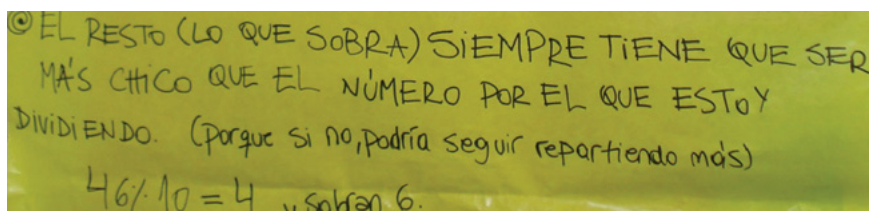 ◉ EL RESTO (LO QUE SOBRA) SIEMPRE TIENE QUE SER
MÁS CHICO QUE EL NÚMERO POR EL QUE ESTOY
DIVIDIENDO. (porque si no, podría seguir repartiendo más)
46 % 10 = 4 y sobran 6.